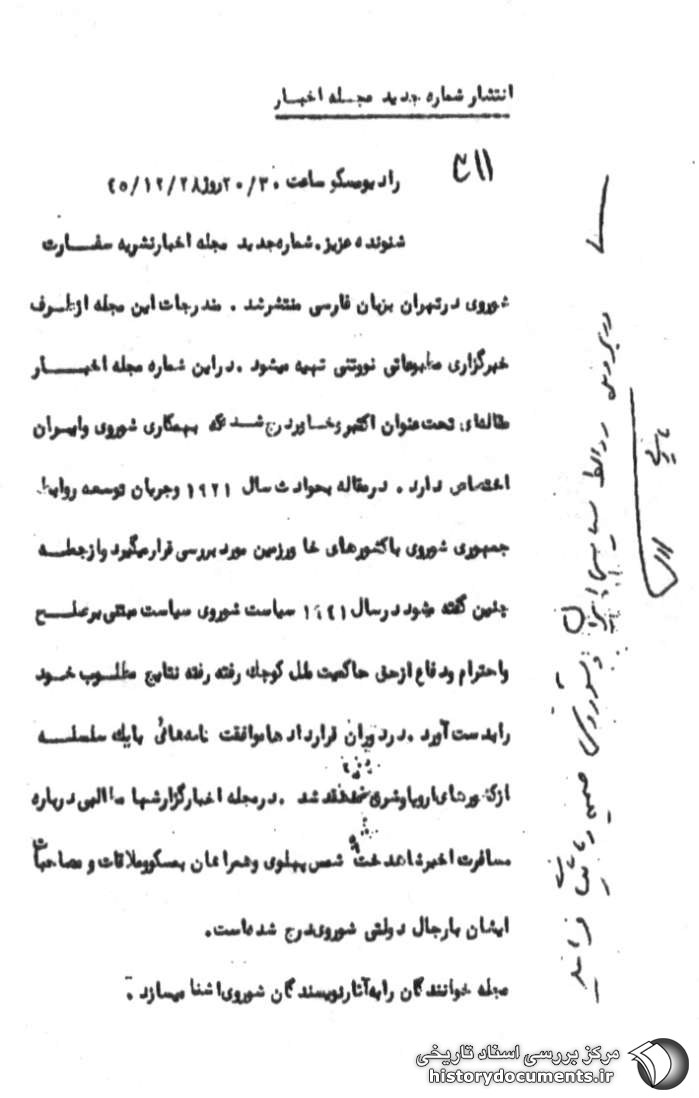 انتشار شماره جدید مجله اخبار
۴۱۱
رادیو مسکو ساعت ۲۰/۳۰ روز ۴۵/۱۲/۲۸
شنونده عزیز، شماره جدید مجله اخبار نشریه سفارت
شوروی در تهران بزبان فارسی منتشر شد . مندرجات این مجله از طرف
خبرگزاری مطبوعاتی نووستی تهیه میشود . در این شماره مجله اخبار
مقاله‌ای تحت عنوان اکتبر و خاور درج شده که بهمکاری شوروی و ایران
اختصاص دارد . در مقاله بحوادث سال ۱۹۲۱ و جریان توسعه روابط
جمهوری شوروی با کشورهای خاور زمین مورد بررسی قرار میگیرد و از جمله
چنین گفته میشود در سال ۱۹۲۱ سیاست شوروی سیاست مبتنی بر صلح
و احترام و دفاع از حق حاکمیت ملل کوچک رفته رفته نتایج مطلوب خود
را بدست آورد . در دوران قراردادها موافقت نامه‌هائی با یک سلسله
از کشورهای اروپا و شرق شد . در مجله اخبار گزارشها مطالبی درباره
مسافرت اخیر شاهدخت شمس پهلوی و همراهان بمسکو و ملاقات و مصاحبات
ایشان با رجال دولتی شوروی درج شده است .
مجله خوانندگان را به آثار نویسندگان شوروی آشنا میسازد .
در پرونده روابط سیاسی ایران و شوروی ضمیمه و بایگانی فرمائید
مرکز بررسی اسناد تاریخی
historydocuments.ir